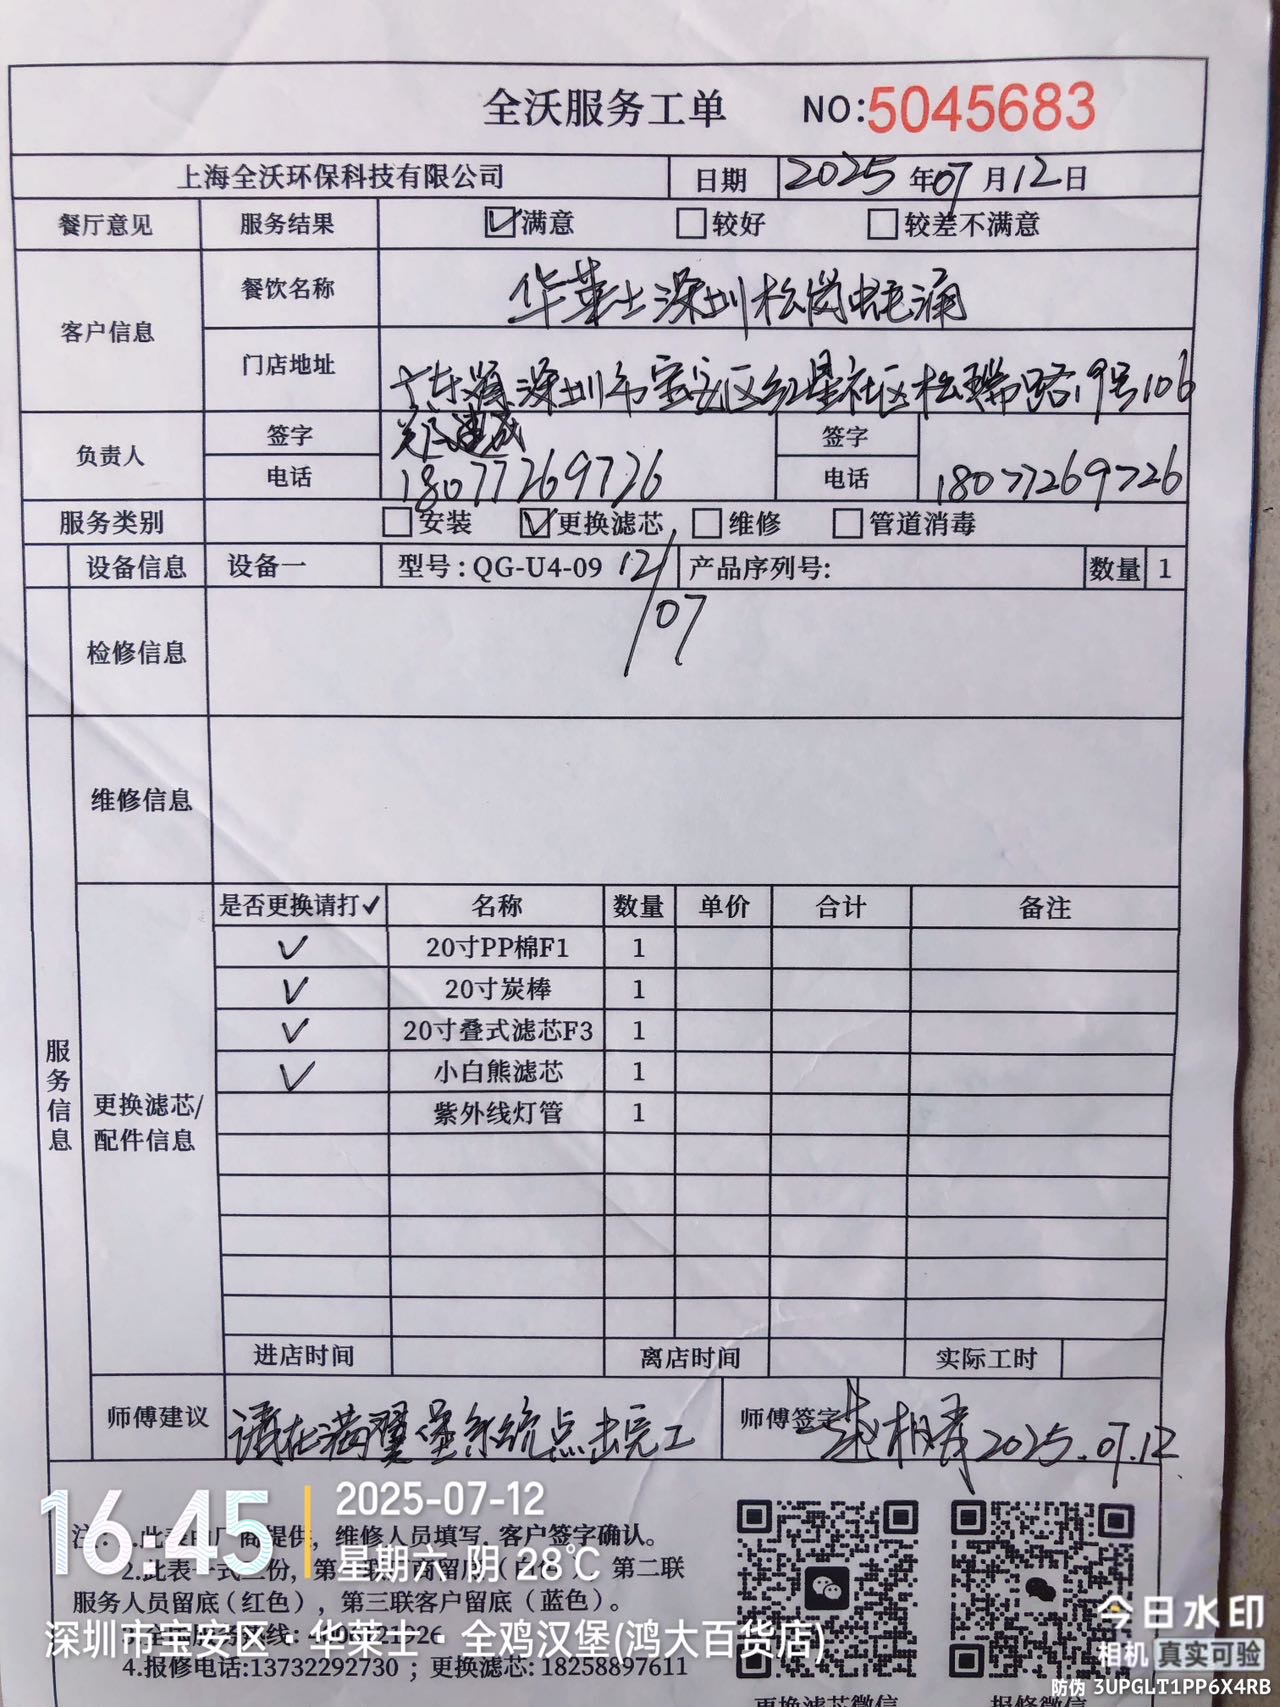 全沃服务工单 NO:5045683
上海全沃环保科技有限公司 日期 2025年07月12日
餐厅意见 服务结果 满意 较好 较差不满意
客户信息 餐饮名称 华莱士深圳松岗蚝涌
门店地址 广东深圳市宝安区红星社区松瑞路19号106
负责人 签字 签字
电话 18077269726 电话 18077269726
服务类别 安装 更换滤芯 维修 管道消毒
设备信息 设备一 型号：QG-U4-09 产品序列号: 数量 1
12/07
检修信息
维修信息
服务信息
更换滤芯/配件信息
是否更换请打✓ 名称 数量 单价 合计 备注
✓ 20寸PP棉F1 1
✓ 20寸炭棒 1
✓ 20寸叠式滤芯F3 1
✓ 小白熊滤芯 1
紫外线灯管 1
进店时间 离店时间 实际工时
师傅建议 请在满翼堡系统点击完工 师傅签字 2025.07.12
注: 1.此表由厂商提供，维修人员填写，客户签字确认。
2.此表一式三份, 第 第二联
服务人员留底（红色），第三联客户留底（蓝色）。
4.报修电话:13732292730 ；更换滤芯: 18258897611
更换滤芯微信 报修微信
16:45
2025-07-12
星期六 阴 28℃
深圳市宝安区 · 华莱士 · 全鸡汉堡(鸿大百货店)
今日水印
相机 真实可验
防伪 3UPGLT1PP6X4RB